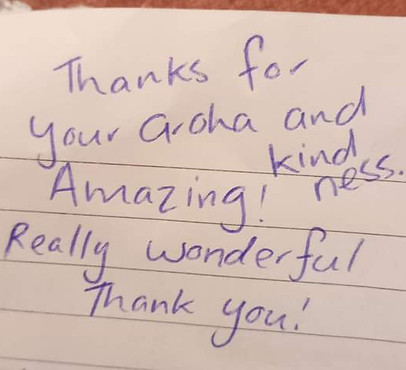 Thanks for
your aroha and
kind
ness.
Amazing!
Really wonderful
Thank you!